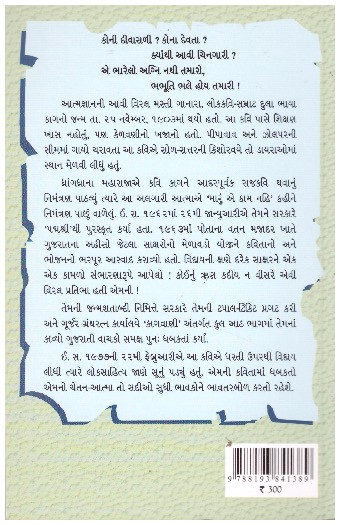 કોની દીવાસળી ? કોના દેવતા ?
ક્યાંથી આવી ચિનગારી ?
એ ભારેલો અગ્નિ નથી તમારો,
ભભૂતિ ભલે હોય તમારી !
આત્મજ્ઞાનની આવી વિરલ મસ્તી ગાનારા, લોકકવિ-સમ્રાટ દુલા ભાયા
કાગનો જન્મ તા. ૨૫ નવેમ્બર, ૧૯૦૩માં થયો હતો. આ કવિ પાસે શિક્ષણ
ખાસ નહોતું, પણ કેળવણીનો ખજાનો હતો. પીપાવાવ અને ઝોલપરની
સીમમાં ગાયો ચરાવતા આ કવિએ સોળ-સત્તરની કિશોરવયે તો ડાયરાઓમાં
સ્થાન મેળવી લીધું હતું.
ધ્રાંગધ્રાના મહારાજાએ કવિ કાગને આદરપૂર્વક રાજકવિ થવાનું
નિમંત્રણ પાઠવ્યું ત્યારે આ અલગારી આત્માએ 'મારું એ કામ નહિ' કહીને
નિમંત્રણ પાછું વાળેલું. ઈ. સ. ૧૯૬૨માં ૨૬મી જાન્યુઆરીએ તેમને સરકારે
'પદ્મશ્રી'થી પુરસ્કૃત કર્યા હતા. ૧૯૬૭માં પોતાના વતન મજાદર ખાતે
ગુજરાતના અઢીસો જેટલા સાક્ષરોનો મેળાવડો યોજીને કવિતાનો અને
ભોજનનો ભરપૂર આસ્વાદ કરાવ્યો હતો. વિદાયની ક્ષણે દરેક સાક્ષરને એક
એક કામળો સંભારણારૂપે આપેલો ! કોઈનું ઋણ કદીય ન વીસરે એવી
વિરલ પ્રતિભા હતી એમની !
તેમની જન્મશતાબ્દી નિમિત્તે સરકારે તેમની ટપાલ-ટિકિટ પ્રગટ કરી
અને ગૂર્જર ગ્રંથરત્ન કાર્યાલયે 'કાગવાણી' અંતર્ગત કુલ આઠ ભાગમાં તેમનાં
કાવ્યો ગુજરાતી વાચકો સમક્ષ પુનઃ ધબકતાં કર્યાં.
ઈ. સ. ૧૯૭૭ની ૨૨મી ફેબ્રુઆરીએ આ કવિએ ધરતી ઉપરથી વિદાય
લીધી ત્યારે લોકસાહિત્ય જાણે સૂનું પડ્યું હતું. એમની કવિતામાં ધબકતો
એમનો ચેતન-આત્મા તો સદીઓ સુધી ભાવકોને ભાવતરબોળ કરતો રહેશે.
9 788193 841389
₹ 300